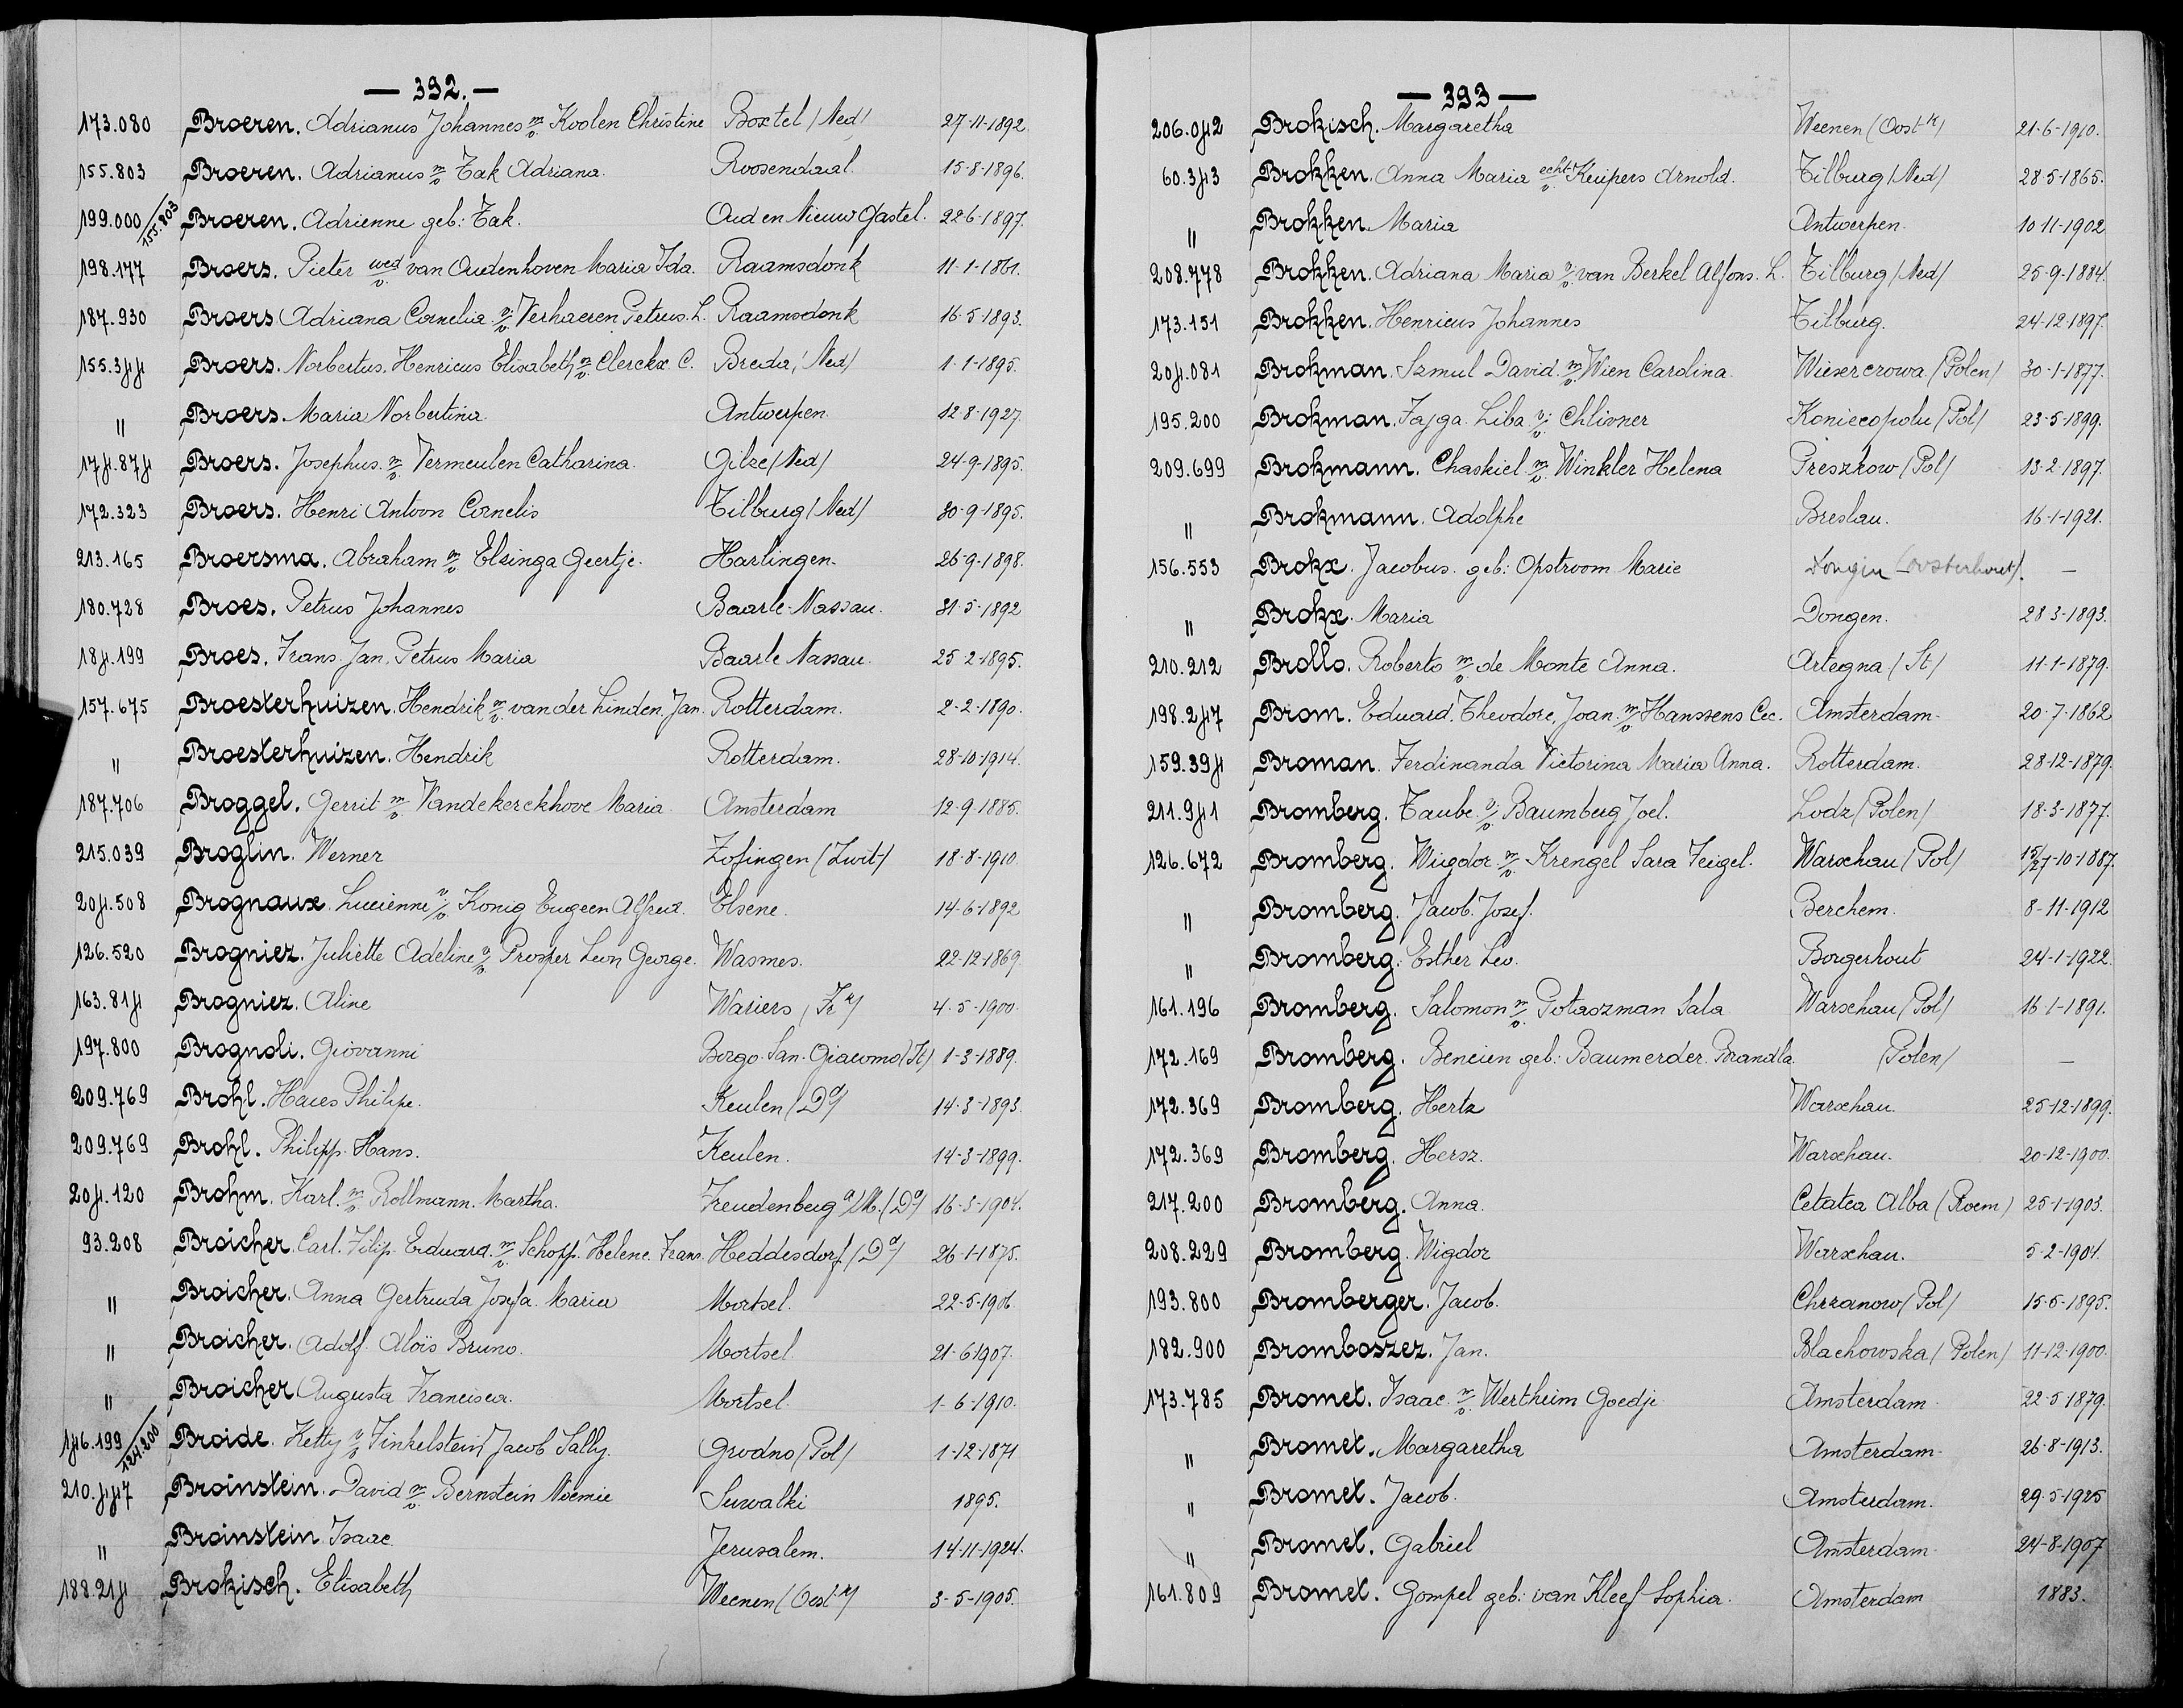 — 392. —
173.080 Broeren. Adrianus Johannes m/v Koolen Christine Boxtel (Ned) 27-11-1892
155.803 Broeren. Adrianus m/v Tak Adriana. Roosendaal. 15-8-1896.
199.000/155.803 Broeren. Adrienne geb: Tak. Oud en Nieuw Gastel. 22-6-1897.
198.177 Broers. Pieter wed/v. van Oudenhoven Maria Ida. Raamsdonk 11-1-1861.
187.930 Broers Adriana Cornelia v/v. Verhaeren Petrus. L. Raamsdonk 16-5-1893.
155.344 Broers. Norbertus. Henricus Elisabeth m/v. Clerckx C. Breda (Ned) 1-1-1895.
" Broers. Maria Norbertina Antwerpen. 12-8-1927.
174.874 Broers. Josephus. m/v. Vermeulen Catharina. Gilze (Ned) 24-9-1895.
172.323 Broers. Henri Antoon Cornelis Tilburg (Ned) 30-9-1895.
213.165 Broersma. Abraham m/v. Elzinga Geertje. Harlingen. 26-9-1898.
180.728 Broes. Petrus Johannes Baarle-Nassau. 31-5-1892
184.199 Broes. Frans. Jan. Petrus Maria Baarle Nassau. 25-2-1895.
157.675 Broesterhuizen. Hendrik m/v. van der Linden. Jan. Rotterdam. 2-2-1890.
" Broesterhuizen. Hendrik Rotterdam. 28-10-1914.
187.706 Broggel. Gerrit m/v. Vandekerckhove Maria Amsterdam 12-9-1885.
215.039 Broglin. Werner Zofingen (Zwit) 18-8-1910.
204.508 Brognaux. Lucienne v/v. Konig Eugeen Alfred. Elsene. 14-6-1892
126.520 Brogniez. Juliette Adeline v/v. Prosper Leon George. Wasmes. 22-12-1869.
163.814 Brogniez. Aline Wariers (Frk) 4-5-1900.
197.800 Brognoli. Giovanni Borgo-San-Giacomo (It) 1-3-1889.
209.769 Brohl. Haues Philipe. Keulen (Dd) 14-3-1893.
209.769 Brohl. Philipp. Hans. Keulen. 14-3-1899.
204.120 Brohm. Karl. m/v. Rollmann. Martha. Freudenberg a/M. (Dd) 16-3-1904.
93.208 Broicher. Carl. Filip. Eduard. m/v. Schopp. Helene. Frans. Heddesdorf (Dd) 26-1-1875.
" Broicher. Anna Gertruda Josefa. Maria Mortsel. 22-5-1906.
" Broicher. Adolf. Aloïs Bruno. Mortsel. 21-6-1907.
" Broicher Augusta Francisca. Mortsel. 1-6-1910.
146.199/124.200 Broide. Ketty v/v Finkelstein Jacob Sally. Grodno (Pol) 1-12-1871
210.447 Broinstein. David m/v. Bernstein Noemie Suwalki 1895.
" Broinstein. Isaac. Jerusalem. 14-11-1924.
188.214 Brokisch. Elisabeth Weenen (Oost-k) 3-5-1905.
— 393 —
206.042 Brokisch. Margaretha Weenen (Oost-k) 21-6-1910.
60.343 Brokken. Anna Maria echt/v. Kuipers Arnold. Tilburg (Ned) 28-5-1865.
" Brokken. Maria Antwerpen. 10-11-1902
208.778 Brokken. Adriana Maria v/v. van Berkel Alfons. L. Tilburg (Ned) 25-9-1884.
173.151 Brokken. Henricus Johannes Tilburg. 24-12-1897.
204.081 Brokman. Szmul David. m/v. Wien Carolina. Wiexerczowa (Polen) 30-1-1877.
195.200 Brokman. Fajga. Liba v/v. Chlivner Koniecopolu (Pol) 23-5-1899.
209.699 Brokmann. Chaskiel m/v. Winkler Helena Preszkow (Pol) 13-2-1897.
" Brokmann. Adolphe Breslau. 16-1-1921.
156.553 Brokx. Jacobus. geb: Opstroom Marie Dongen (oosterhout). —
" Brokx. Maria Dongen. 28-3-1893.
210.212 Brollo. Roberto m/v. de Monte Anna. Artegna (It) 11-1-1879.
198.247 Brom. Eduard. Theodore, Joan. m/v. Hanssens Cec. Amsterdam. 20-7-1862
159.394 Broman. Ferdinanda Victorina Maria Anna. Rotterdam. 28-12-1879.
211.941 Bromberg. Taube. v/v. Baumberg Joel. Lodz (Polen) 18-3-1877.
126.672 Bromberg. Wigdor m/v. Krengel Sara Feigel. Warschau (Pol) 15/27-10-1887.
" Bromberg. Jacob. Josef. Berchem. 8-11-1912
" Bromberg. Esther Lea. Borgerhout 24-1-1922.
161.196 Bromberg. Salomon m/v. Potaszman Sala Warschau (Pol) 16-1-1891.
172.169 Bromberg. Bencien geb: Baumerder. Brandla. (Polen) —
172.369 Bromberg. Hertz Warschau. 25-12-1899.
172.369 Bromberg. Hersz. Warschau. 20-12-1900.
217.200 Bromberg. Anna. Cetatea Alba (Roem) 25-1-1903.
208.229 Bromberg. Wigdor Warschau. 5-2-1904.
193.800 Bromberger. Jacob. Chrzanow (Pol) 15-5-1895.
182.900 Bromboszez. Jan. Blachowska (Polen) 11-12-1900.
173.785 Bromet. Isaac. m/v. Wertheim Goedje Amsterdam 22-5-1879.
" Bromet. Margaretha Amsterdam. 26-8-1913.
" Bromet. Jacob. Amsterdam. 29-5-1925
" Bromet. Gabriel Amsterdam. 24-8-1907
161.809 Bromet. Gompel geb: van Kleef Sophia. Amsterdam 1883.